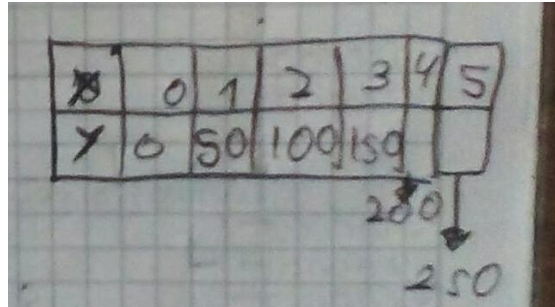 X 0 1 2 3 4 5
Y 0 50 100 150
200
250